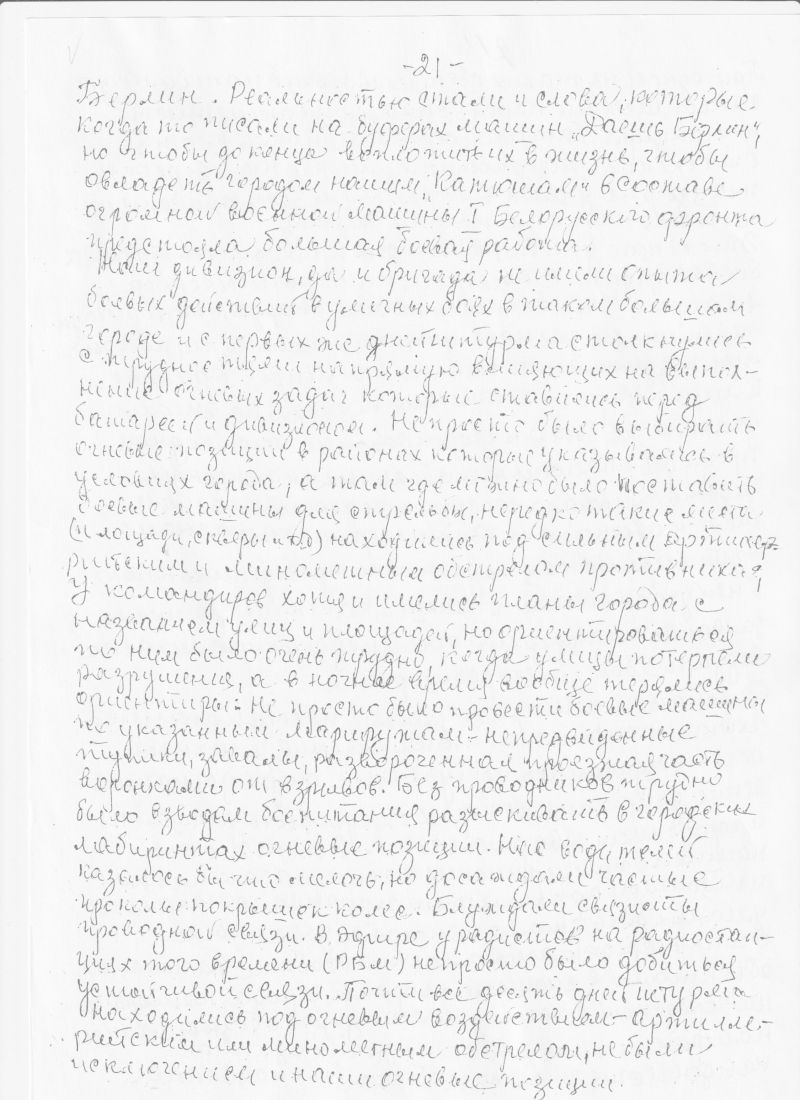 -21-
Берлин. Реальностью стали и слова, которые
когда то писали на буферах машин „Даешь Берлин",
но чтобы до конца воплотить их в жизнь, чтобы
овладеть городом нашим „Катюшам" в составе
огромной военной машины I Белорусского фронта
предстояла большая боевая работа.
Наш дивизион, да и бригада не имели опыта
боевых действий в уличных боях в таком большом
городе и с первых же дней штурма столкнулись
с трудностями напрямую влияющих на выпол-
нение огневых задач которые ставились перед
батареей и дивизионом. Не просто было выбирать
огневые позиции в районах которые указывались в
условиях города, а там где можно было поставить
боевые машины для стрельбы, нередко такие места
(площади, скверы и т.д) находились под сильным артилле-
рийским и минометным обстрелом противника!
У командиров хотя и имелись планы города с
названием улиц и площадей, но ориентироваться
по ним было очень трудно, когда улицы потерпели
разрушения, а в ночное время вообще терялись
ориентиры. Не просто было провести боевые машины
по указанным маршрутам - непредвиденные
тупики, завалы, развороченная проезжая часть
воронками от взрывов. Без проводников трудно
было взводам боепитания разыскивать в городских
лабиринтах огневые позиции. Нас водителей
казалось бы что мелочь, но досаждали частые
проколы покрышек колес. Блуждали связисты
проводной связи. В эфире у радистов на радиостан-
циях того времени (РБМ) непросто было добиться
устойчивой связи. Почти все десять дней штурма
находились под огневым воздействием - артилле-
рийским или минометным обстрелом, не были
исключением и наши огневые позиции.